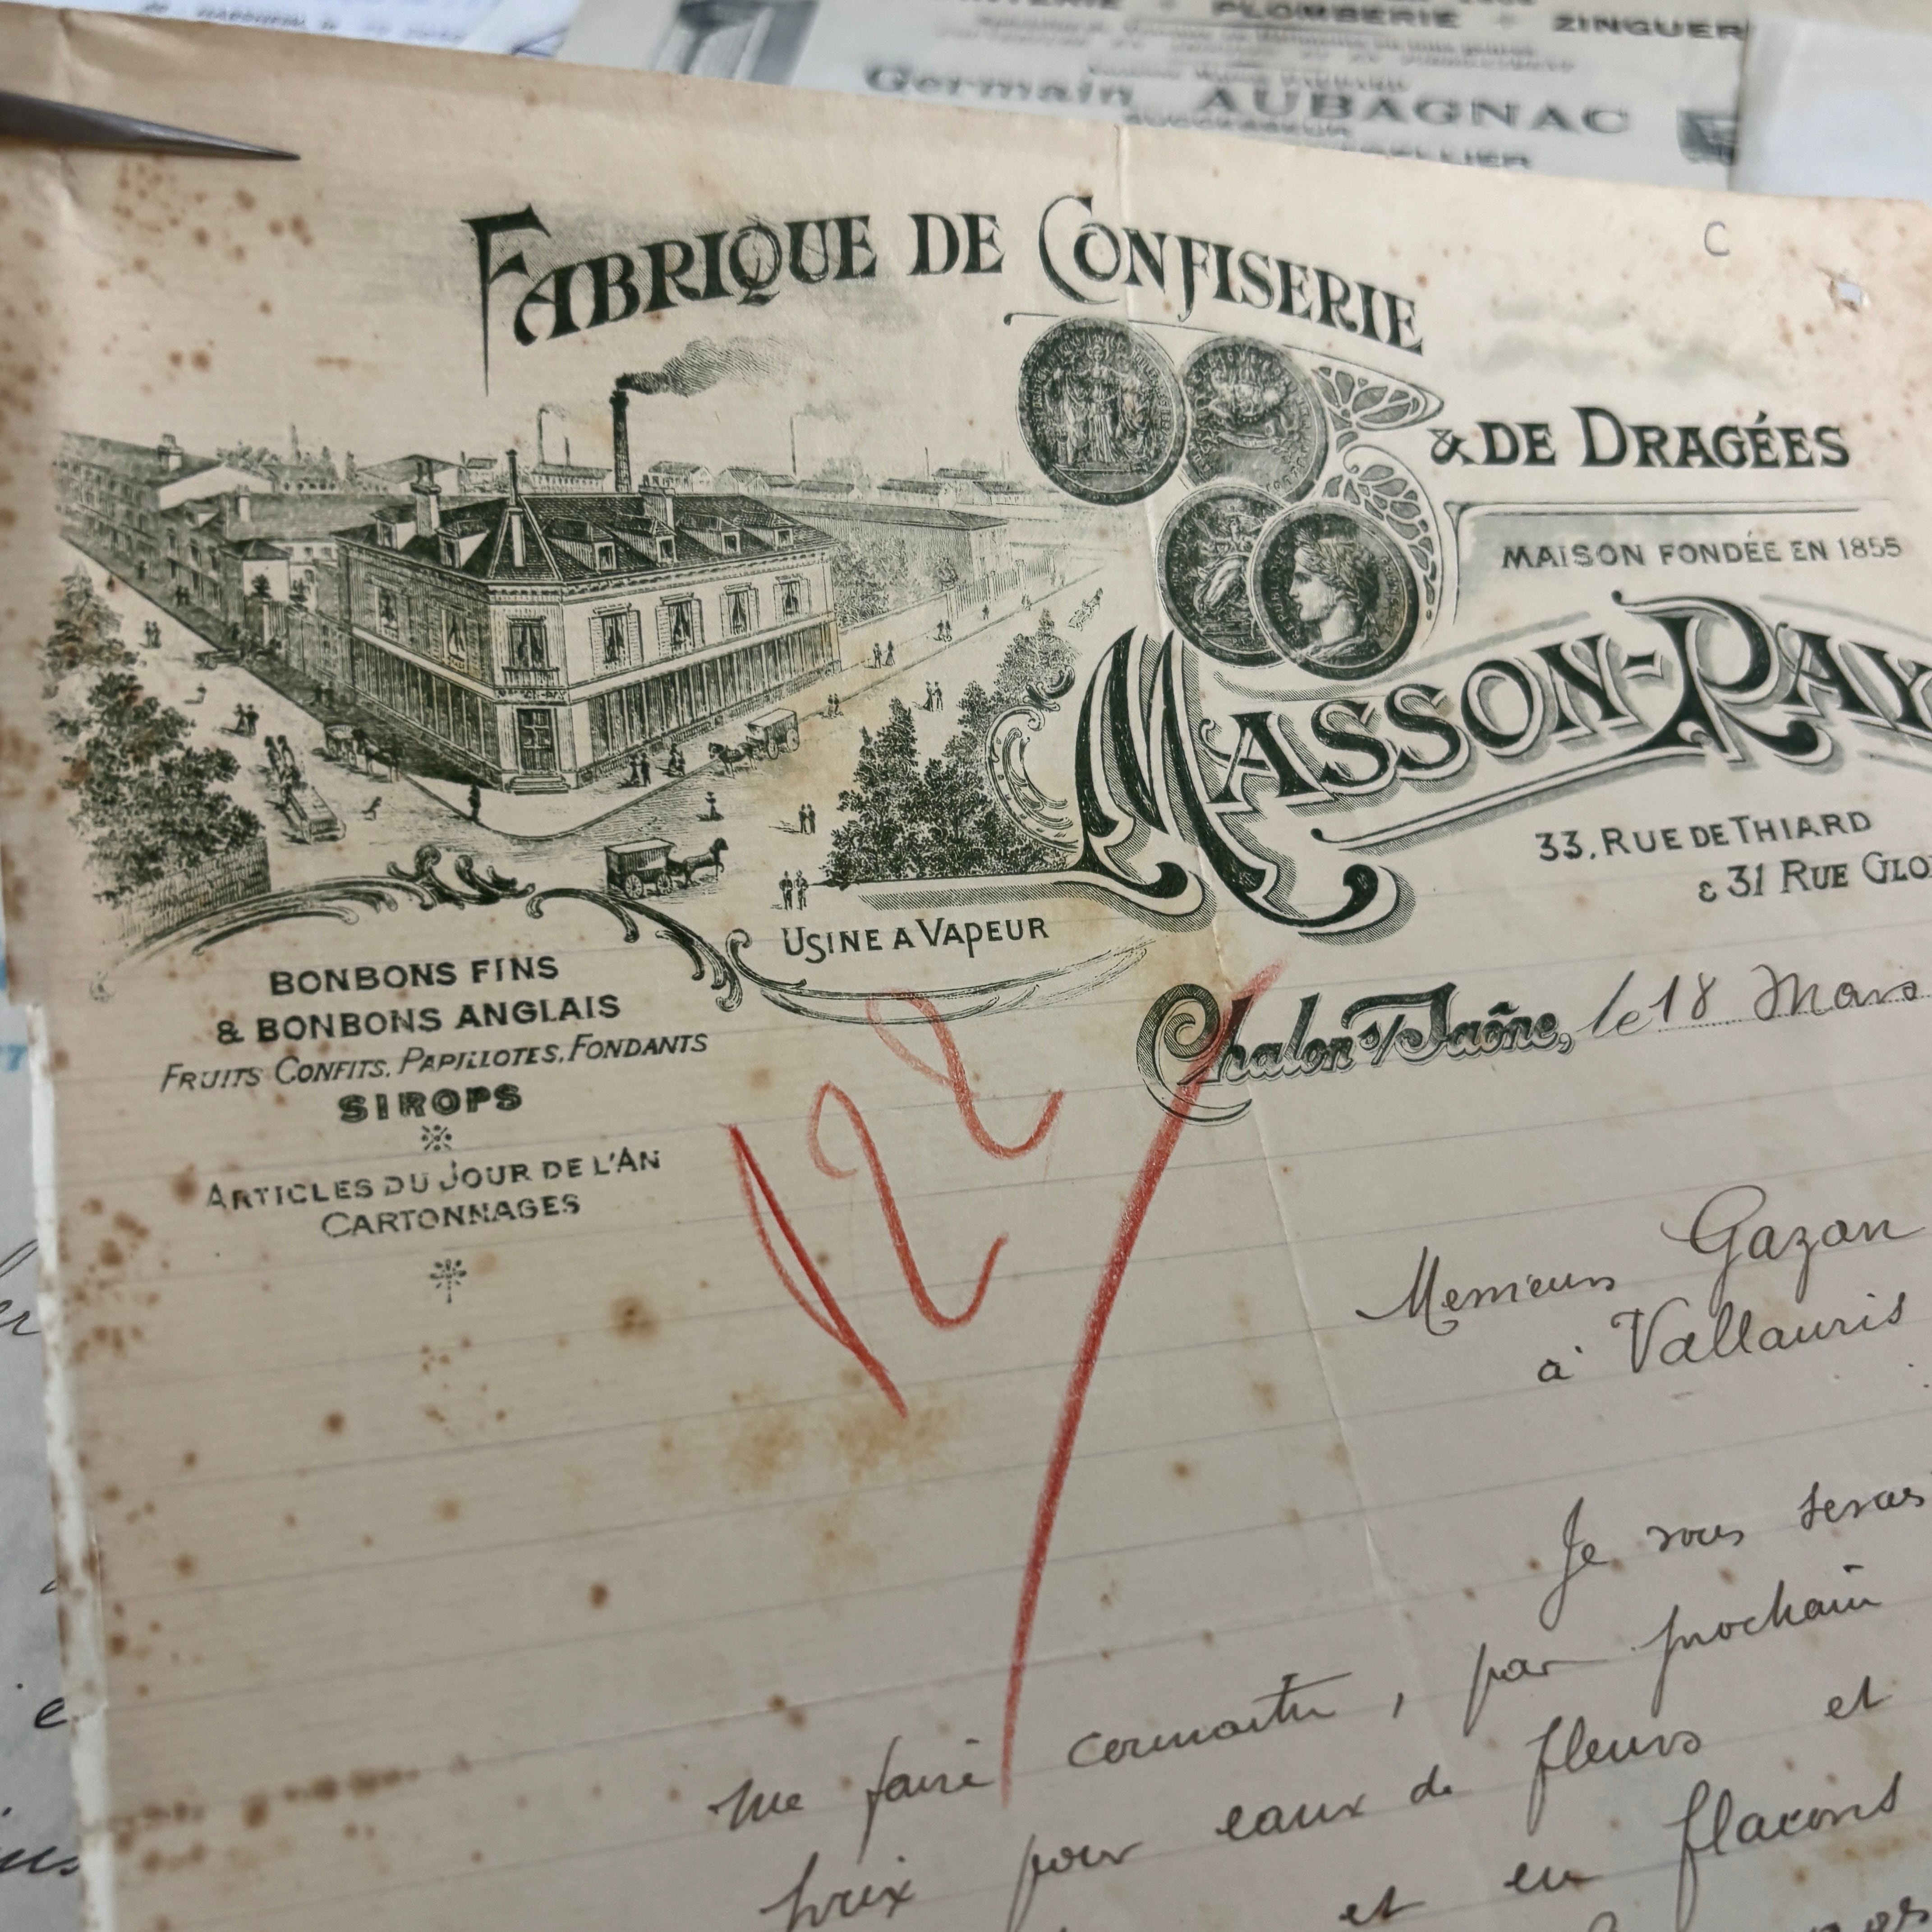 PLOMBERIE + ZINGUER
Germain AUBAGNAC
SUCCESSEUR
C
FABRIQUE DE CONFISERIE
& DE DRAGÉES
MAISON FONDÉE EN 1855
MASSON-RAY
33, RUE DE THIARD
& 31 RUE GLO
USINE A VAPEUR
BONBONS FINS
& BONBONS ANGLAIS
FRUITS CONFITS, PAPILLOTES, FONDANTS
SIROPS
ARTICLES DU JOUR DE L'AN
CARTONNAGES
Chalon s/Saône, le 18 Mars
122
Messieurs Gazan
à Vallauris
Je vous serais
me faire connaitre, par prochain
prix pour eaux de fleurs et
et en flacons